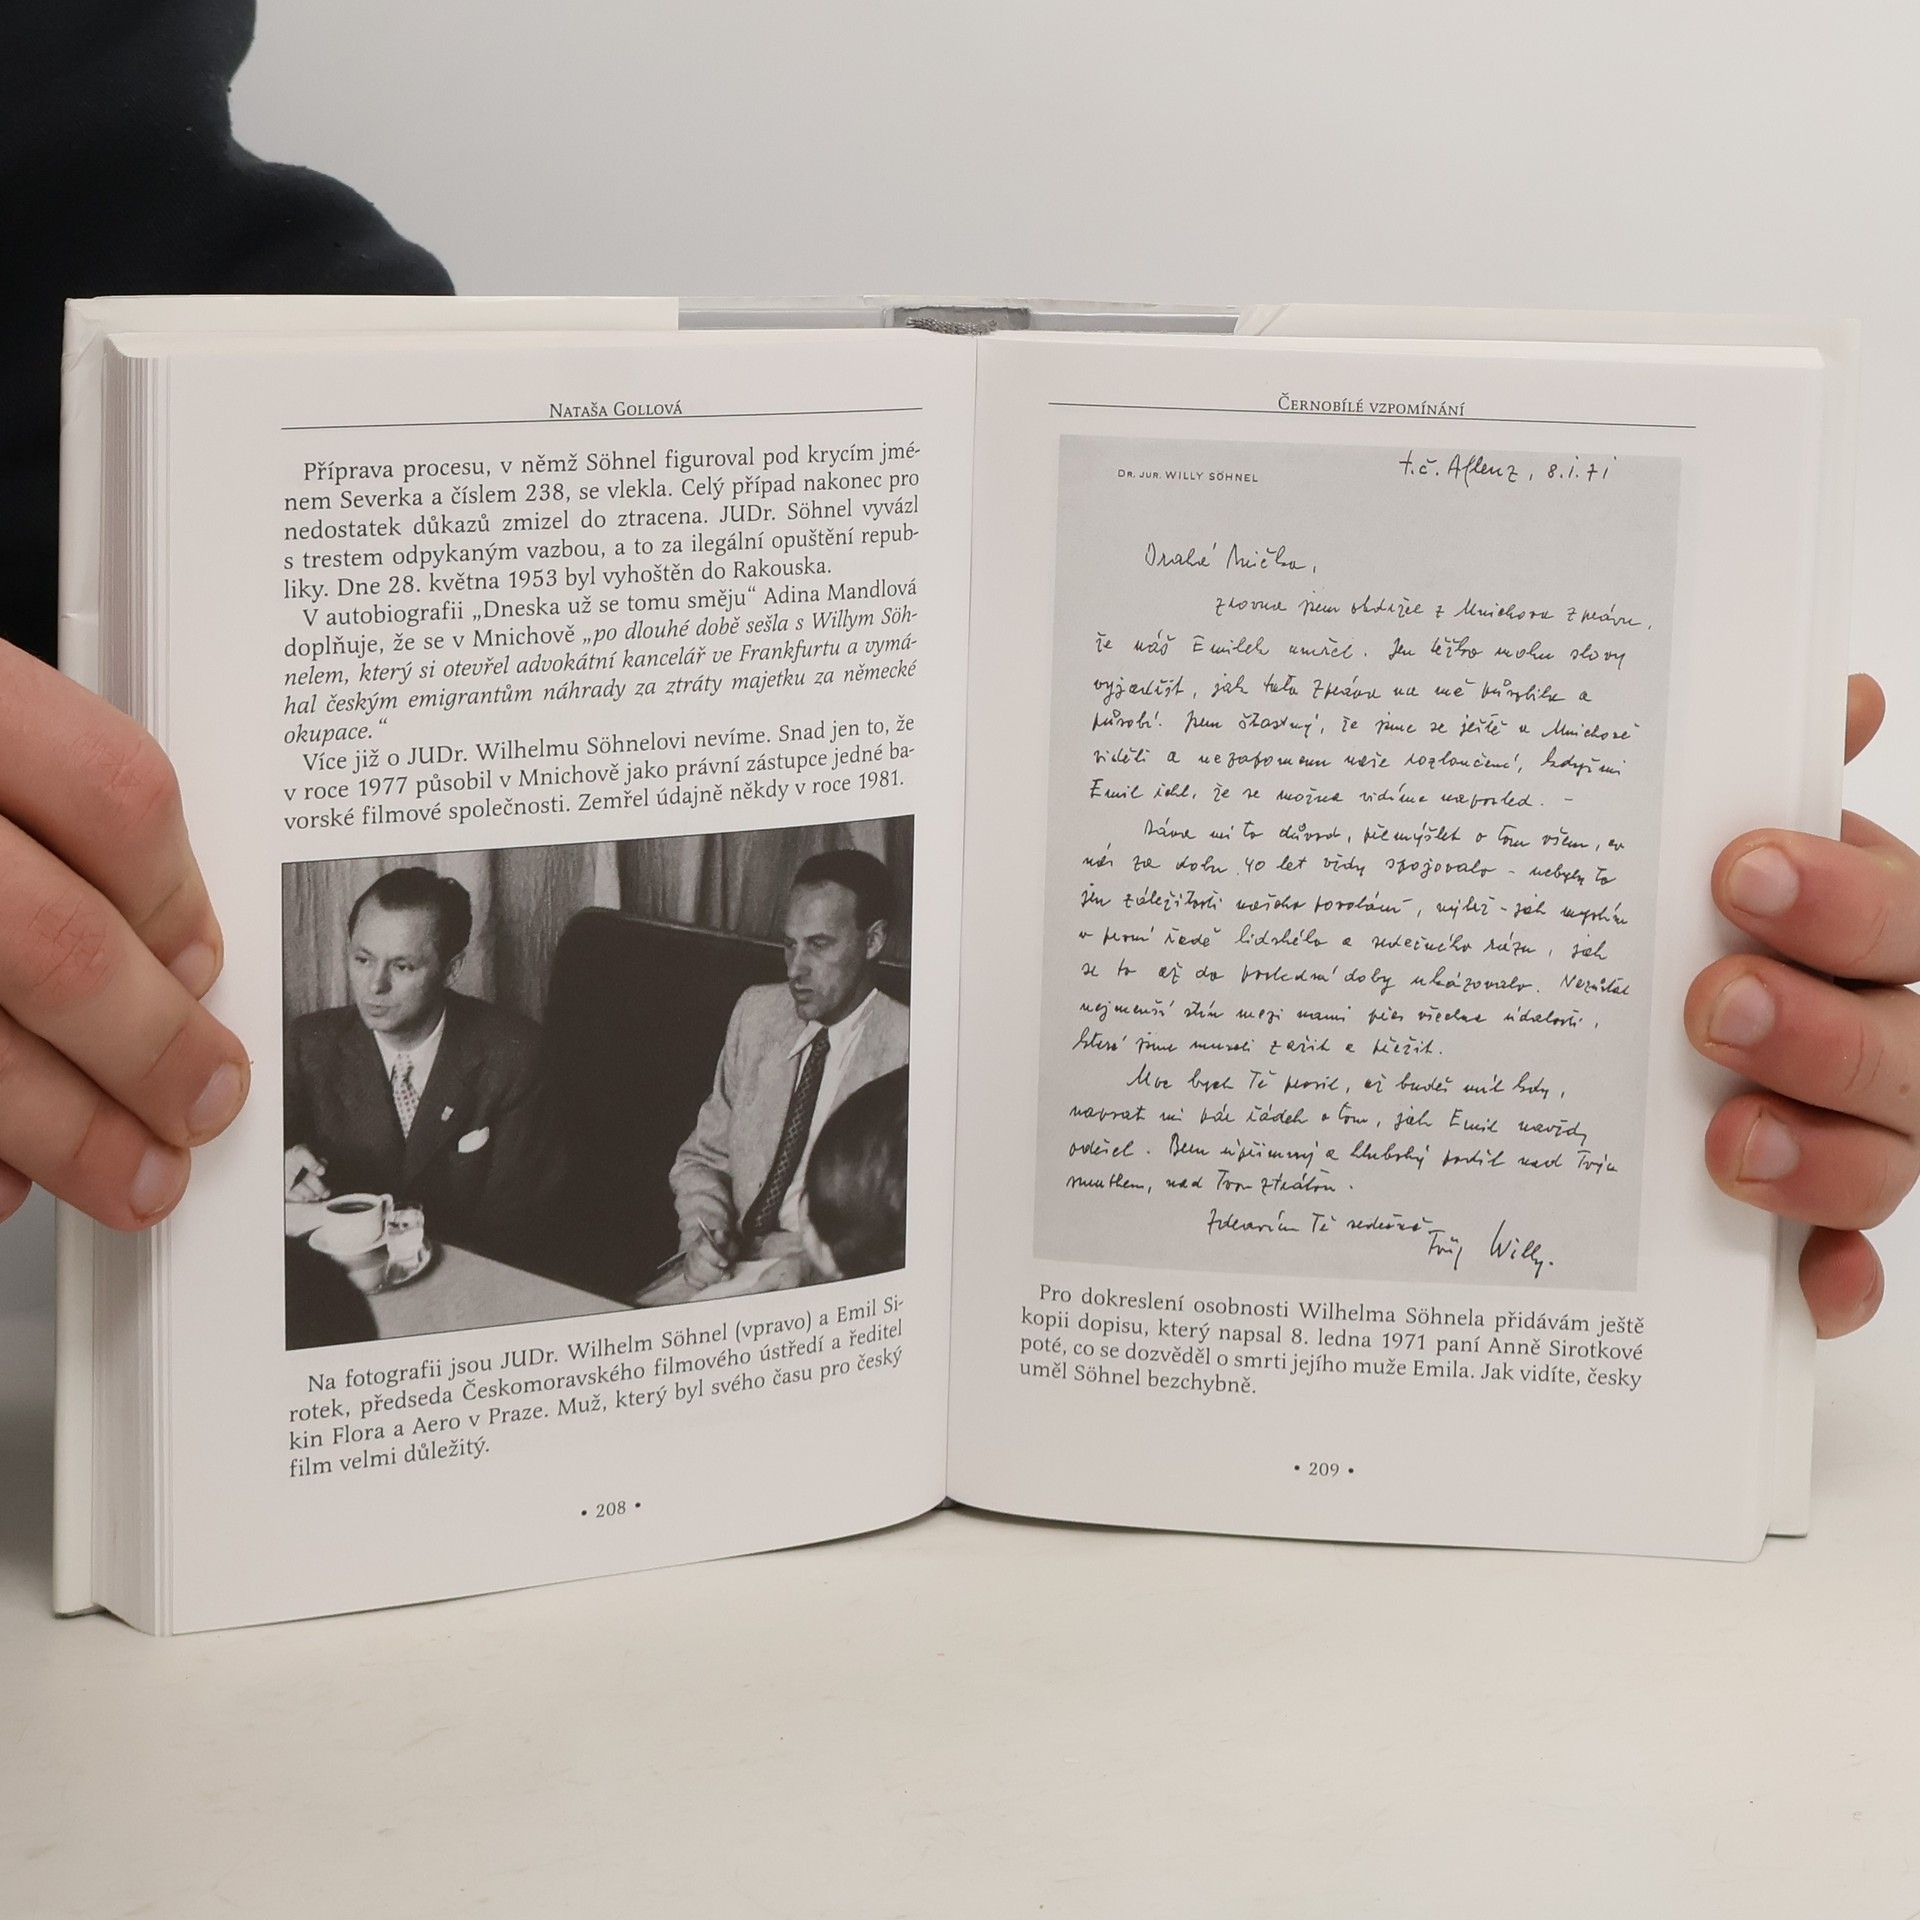 NATAŠA GOLLOVÁ
Příprava procesu, v němž Söhnel figuroval pod krycím jmé-
nem Severka a číslem 238, se vlekla. Celý případ nakonec pro
nedostatek důkazů zmizel do ztracena. JUDr. Söhnel vyvázl
s trestem odpykaným vazbou, a to za ilegální opuštění repub-
liky. Dne 28. května 1953 byl vyhoštěn do Rakouska.
V autobiografii „Dneska už se tomu směju“ Adina Mandlová
doplňuje, že se v Mnichově „po dlouhé době sešla s Willym Söh-
nelem, který si otevřel advokátní kancelář ve Frankfurtu a vymá-
hal českým emigrantům náhrady za ztráty majetku za německé
okupace.“
Více již o JUDr. Wilhelmu Söhnelovi nevíme. Snad jen to, že
v roce 1977 působil v Mnichově jako právní zástupce jedné ba-
vorské filmové společnosti. Zemřel údajně někdy v roce 1981.
Na fotografii jsou JUDr. Wilhelm Söhnel (vpravo) a Emil Si-
rotek, předseda Českomoravského filmového ústředí a ředitel
kin Flora a Aero v Praze. Muž, který byl svého času pro český
film velmi důležitý.
• 208 •
ČERNOBÍLÉ VZPOMÍNÁNÍ
DR. JUR. WILLY SÖHNEL
t.č. Aflenz, 8.I.71
Drahá Aničko,
zrovna jsem obdržel z Mnichova zprávu,
že náš Emilek umřel. Jen těžko mohu slovy
vyjádřit, jak tato zpráva na mě působila a
působí. Jsem šťastný, že jsme se ještě v Mnichově
viděli a nezapomenu naše rozloučení, když mi
Emil řekl, že se možná vidíme naposled. –
Dává mi to důvod, přemýšlet o tom všem, co
nás za dobu 40 let vždy spojovalo – nebyly to
jen záležitosti našeho povolání, nýbrž – jak myslím
v první řadě lidského a srdečného rázu, jak
se to až do poslední doby ukázovalo. Nezůstal
nejmenší stín mezi námi přes všechna údalosti,
které jsme museli zažít a přežít.
Moc bych Tě prosil, až budeš mít kdy,
navrat mi pár řádek o tom, jak Emil navždy
odešel. Beru upřímný a hluboký podíl nad Tvým
smutkem, nad Tvou ztrátou.
Zdravím Tě srdečně
Tvůj Willy.
Pro dokreslení osobnosti Wilhelma Söhnela přidávám ještě
kopii dopisu, který napsal 8. ledna 1971 paní Anně Sirotkové
poté, co se dozvěděl o smrti jejího muže Emila. Jak vidíte, česky
uměl Söhnel bezchybně.
• 209 •